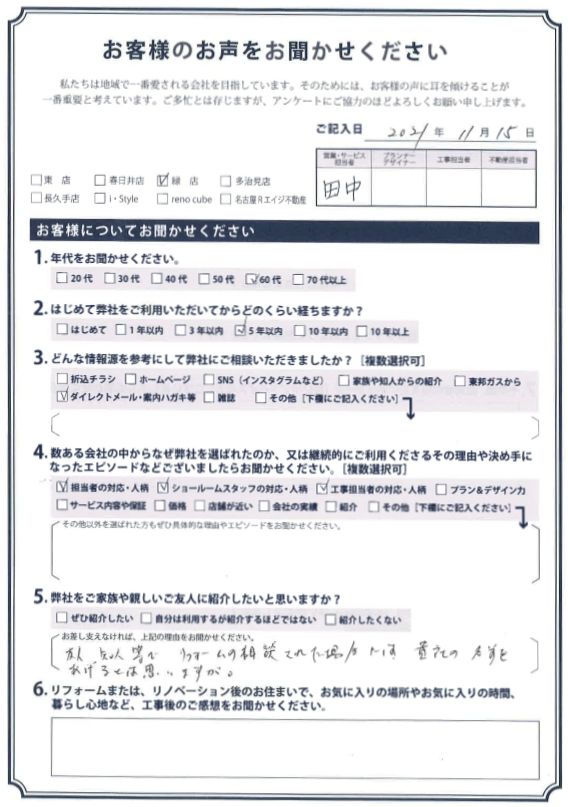 お客様のお声をお聞かせください
私たちは地域で一番愛される会社を目指しています。そのためには、お客様の声に耳を傾けることが
一番重要と考えています。ご多忙とは存じますが、アンケートにご協力のほどよろしくお願い申し上げます。
ご記入日 2021年 11月 15日
営業・サービス担当者 プランナーデザイナー 工事担当者 不動産担当者
田中
□東 店 □春日井店 ☑緑 店 □多治見店
□長久手店 □i・Style □reno cube □名古屋Rエイジ不動産
お客様についてお聞かせください
1. 年代をお聞かせください。
□20代 □30代 □40代 □50代 ☑60代 □70代以上
2. はじめて弊社をご利用いただいてからどのくらい経ちますか？
□はじめて □1年以内 □3年以内 ☑5年以内 □10年以内 □10年以上
3. どんな情報源を参考にして弊社にご相談いただきましたか？［複数選択可］
□折込チラシ □ホームページ □SNS（インスタグラムなど） □家族や知人からの紹介 □東邦ガスから
☑ダイレクトメール・案内ハガキ等 □雑誌 □その他［下欄にご記入ください］
4. 数ある会社の中からなぜ弊社を選ばれたのか、又は継続的にご利用くださるその理由や決め手に
なったエピソードなどございましたらお聞かせください。［複数選択可］
☑担当者の対応・人柄 ☑ショールームスタッフの対応・人柄 ☑工事担当者の対応・人柄 □プラン&デザイン力
□サービス内容や保証 □価格 □店舗が近い □会社の実績 □紹介 □その他［下欄にご記入ください］
その他以外を選ばれた方もぜひ具体的な理由やエピソードをお聞かせください。
5. 弊社をご家族や親しいご友人に紹介したいと思いますか？
□ぜひ紹介したい □自分は利用するが紹介するほどではない □紹介したくない
お差し支えなければ、上記の理由をお聞かせください。
友人 知人等で リフォームの相談された場合には 貴社の 名前を
あげるとは思いますが。
6. リフォームまたは、リノベーション後のお住まいで、お気に入りの場所やお気に入りの時間、
暮らし心地など、工事後のご感想をお聞かせください。